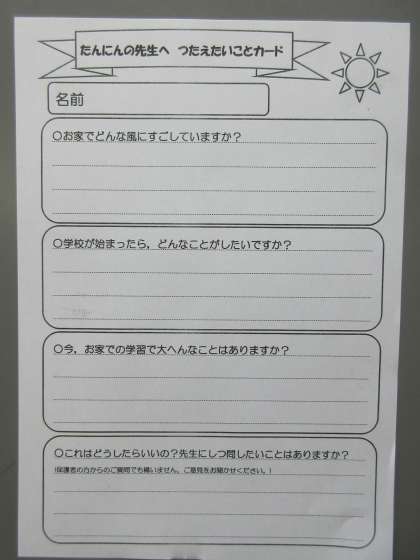 たんにんの先生へ つたえたいことカード
名前
○お家でどんな風にすごしていますか？
○学校が始まったら，どんなことがしたいですか？
○今，お家での学習で大へんなことはありますか？
○これはどうしたらいいの？先生にしつ問したいことはありますか？
!保護者の方からのご質問でも構いません。ご意見をお聞かせください。!